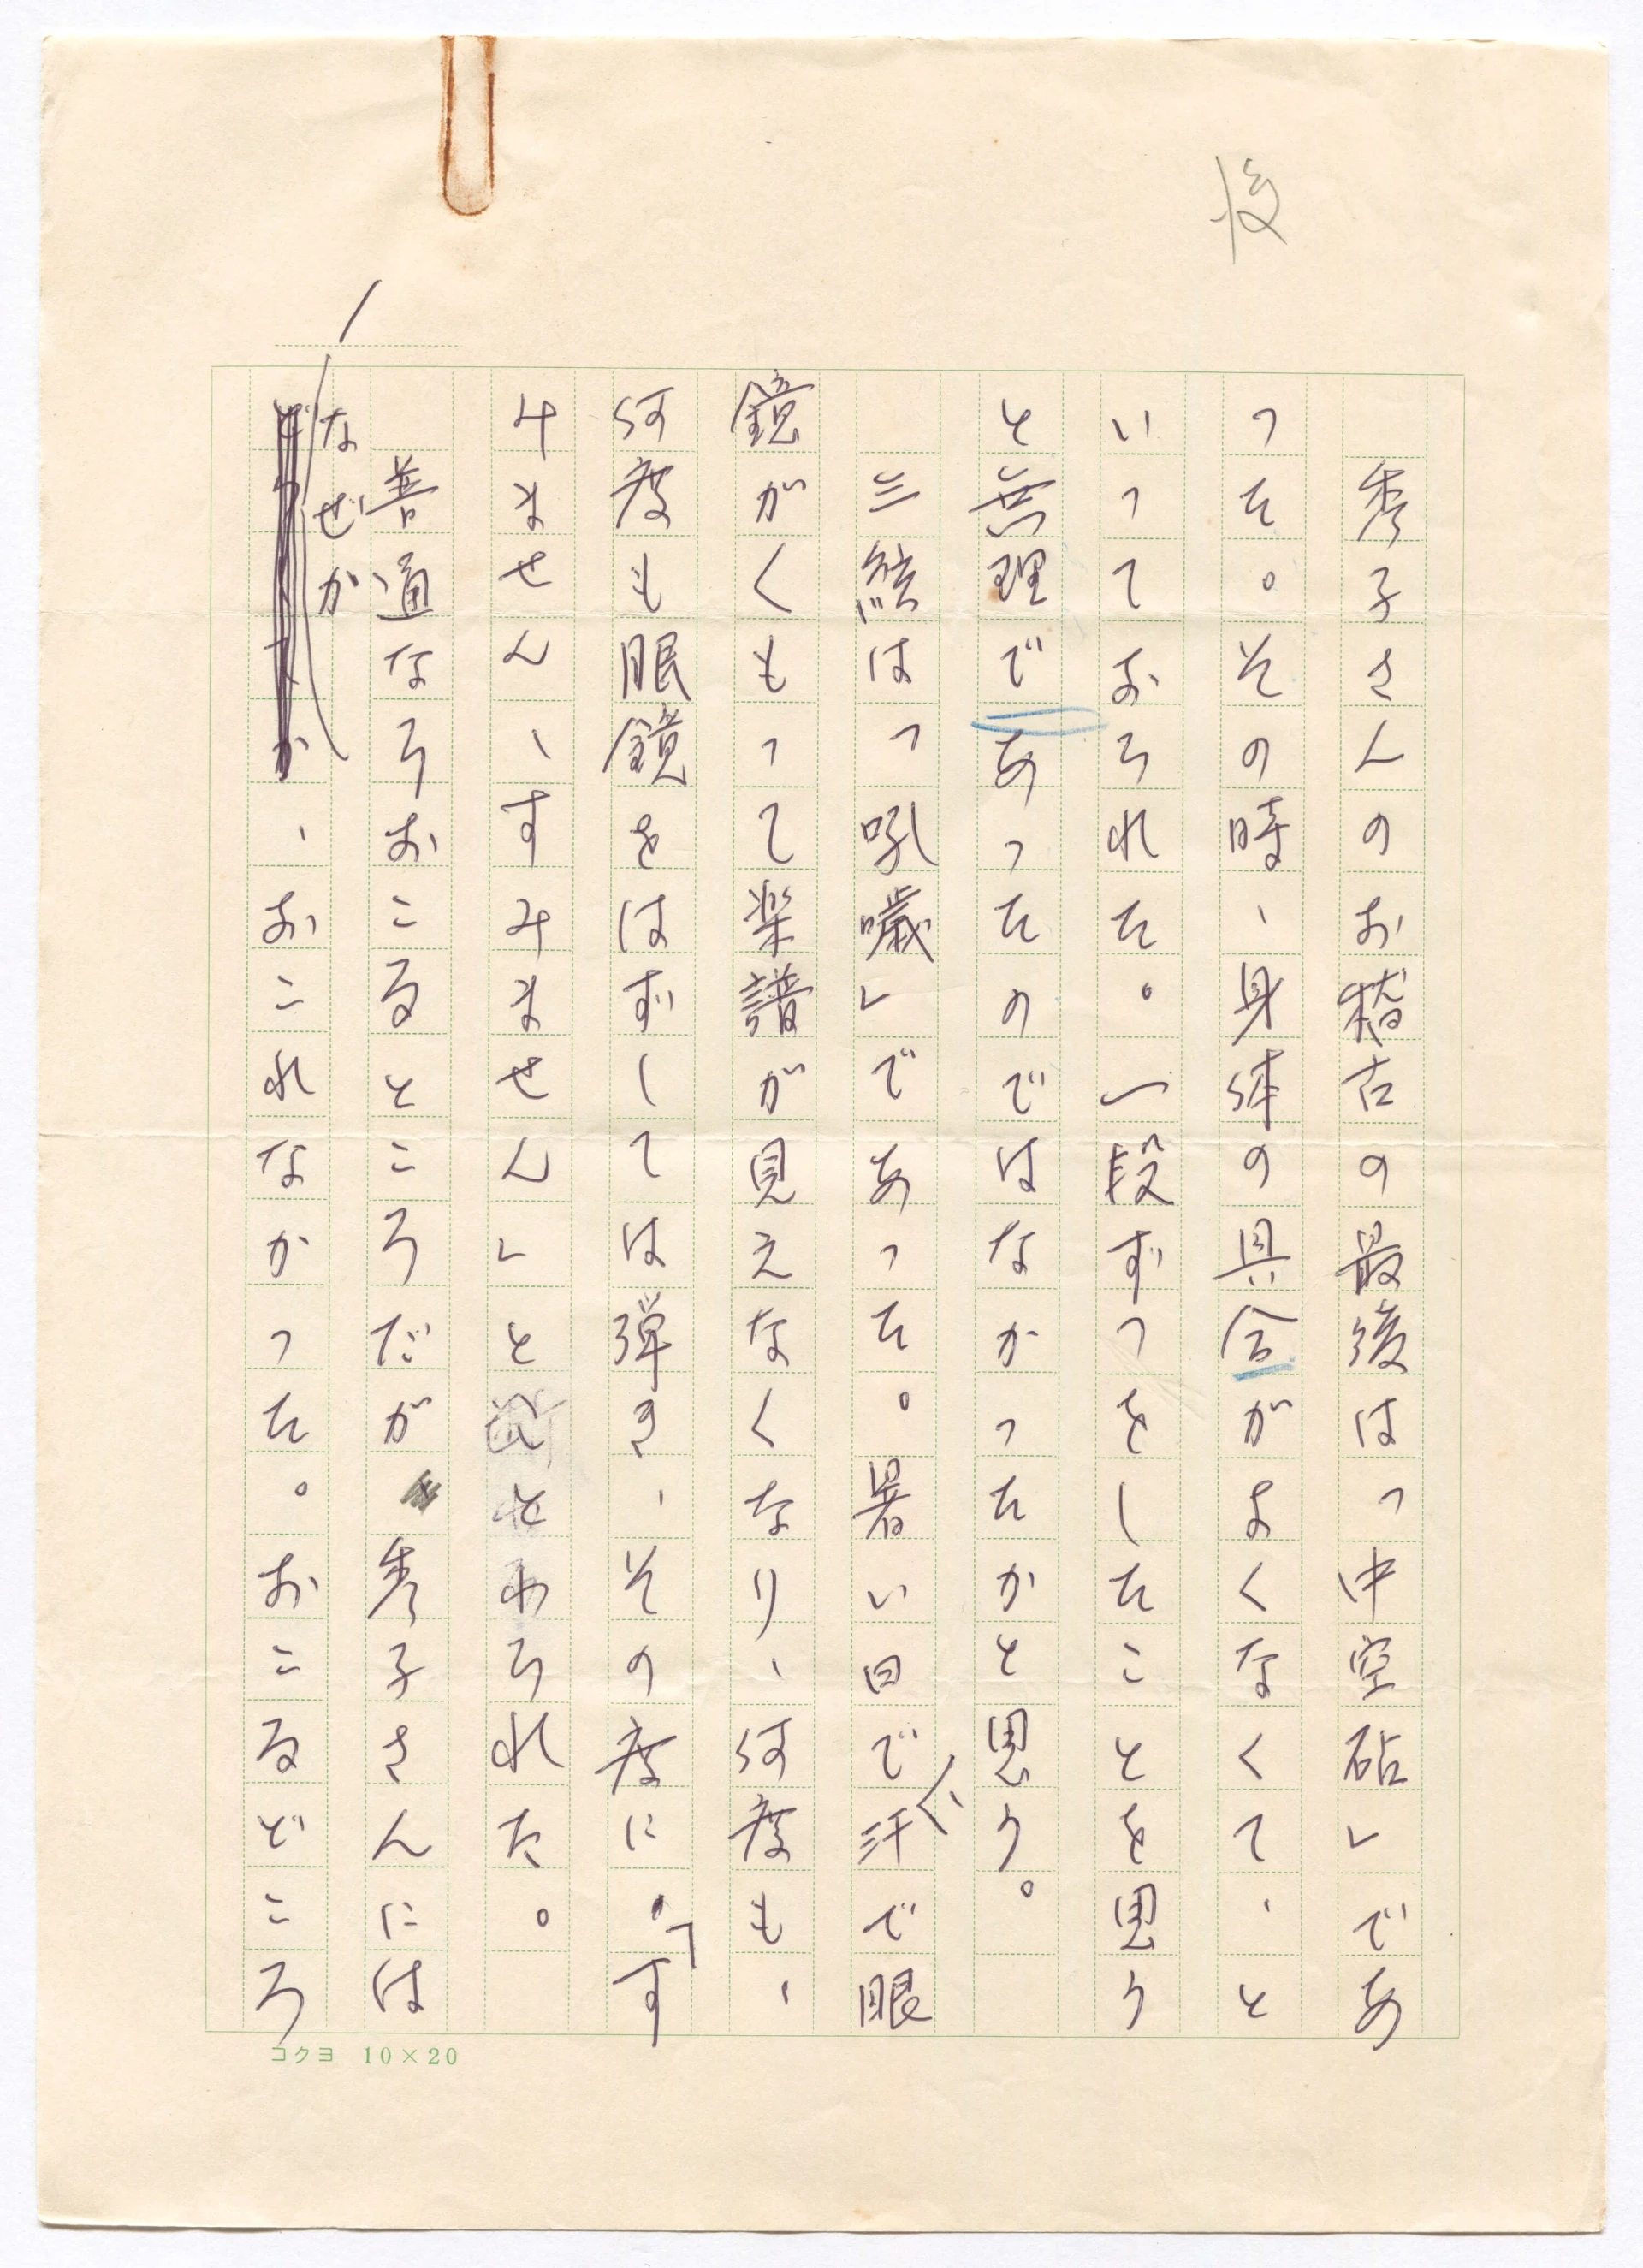 後
秀子さんのお稽古の最後は「中空砧」であ
った。その時、身体の具合がよくなくて、と
いっておられた。一段ずつをしたことを思う
と無理であったのではなかったかと思う。
三絃は「吼噦」であった。暑い日で、汗で眼
鏡がくもって楽譜が見えなくなり、何度も、
何度も眼鏡をはずしては弾き、その度に「す
みません、すみません」とことわられた。
普通ならおこるところだが秀子さんには
なぜか、おこれなかった。おこるどころ
1
コクヨ 10×20